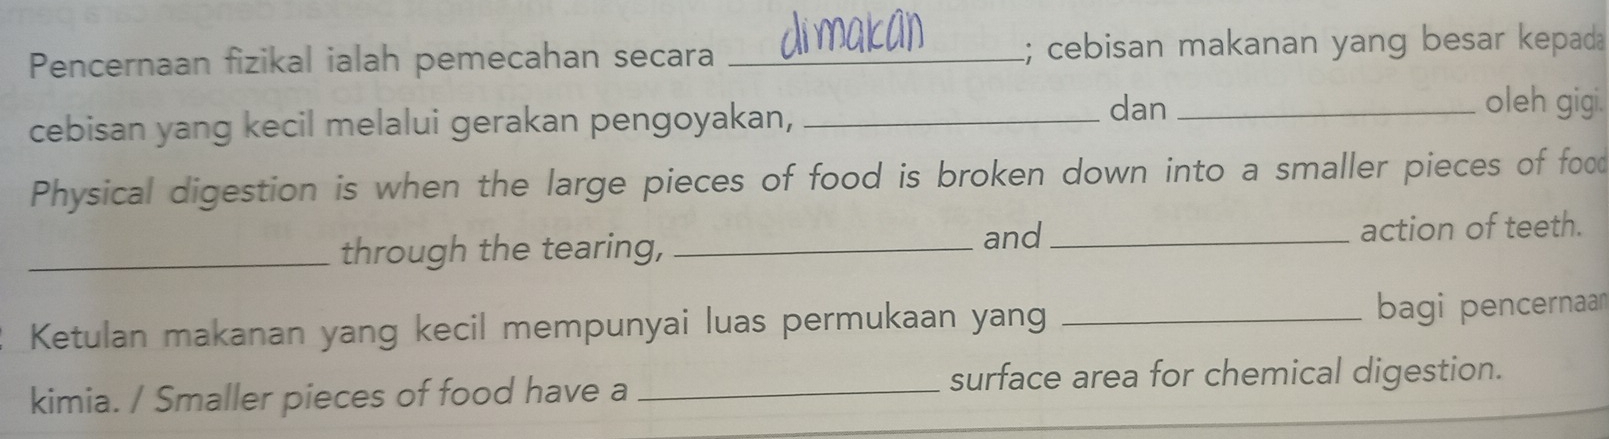 Pencernaan fizikal ialah pemecahan secara dimakan; cebisan makanan yang besar kepada
cebisan yang kecil melalui gerakan pengoyakan, ____________ dan ____________ oleh gigi.
Physical digestion is when the large pieces of food is broken down into a smaller pieces of food
____________ through the tearing, ____________ and ____________ action of teeth.
Ketulan makanan yang kecil mempunyai luas permukaan yang ____________ bagi pencernaan
kimia. / Smaller pieces of food have a ____________ surface area for chemical digestion.